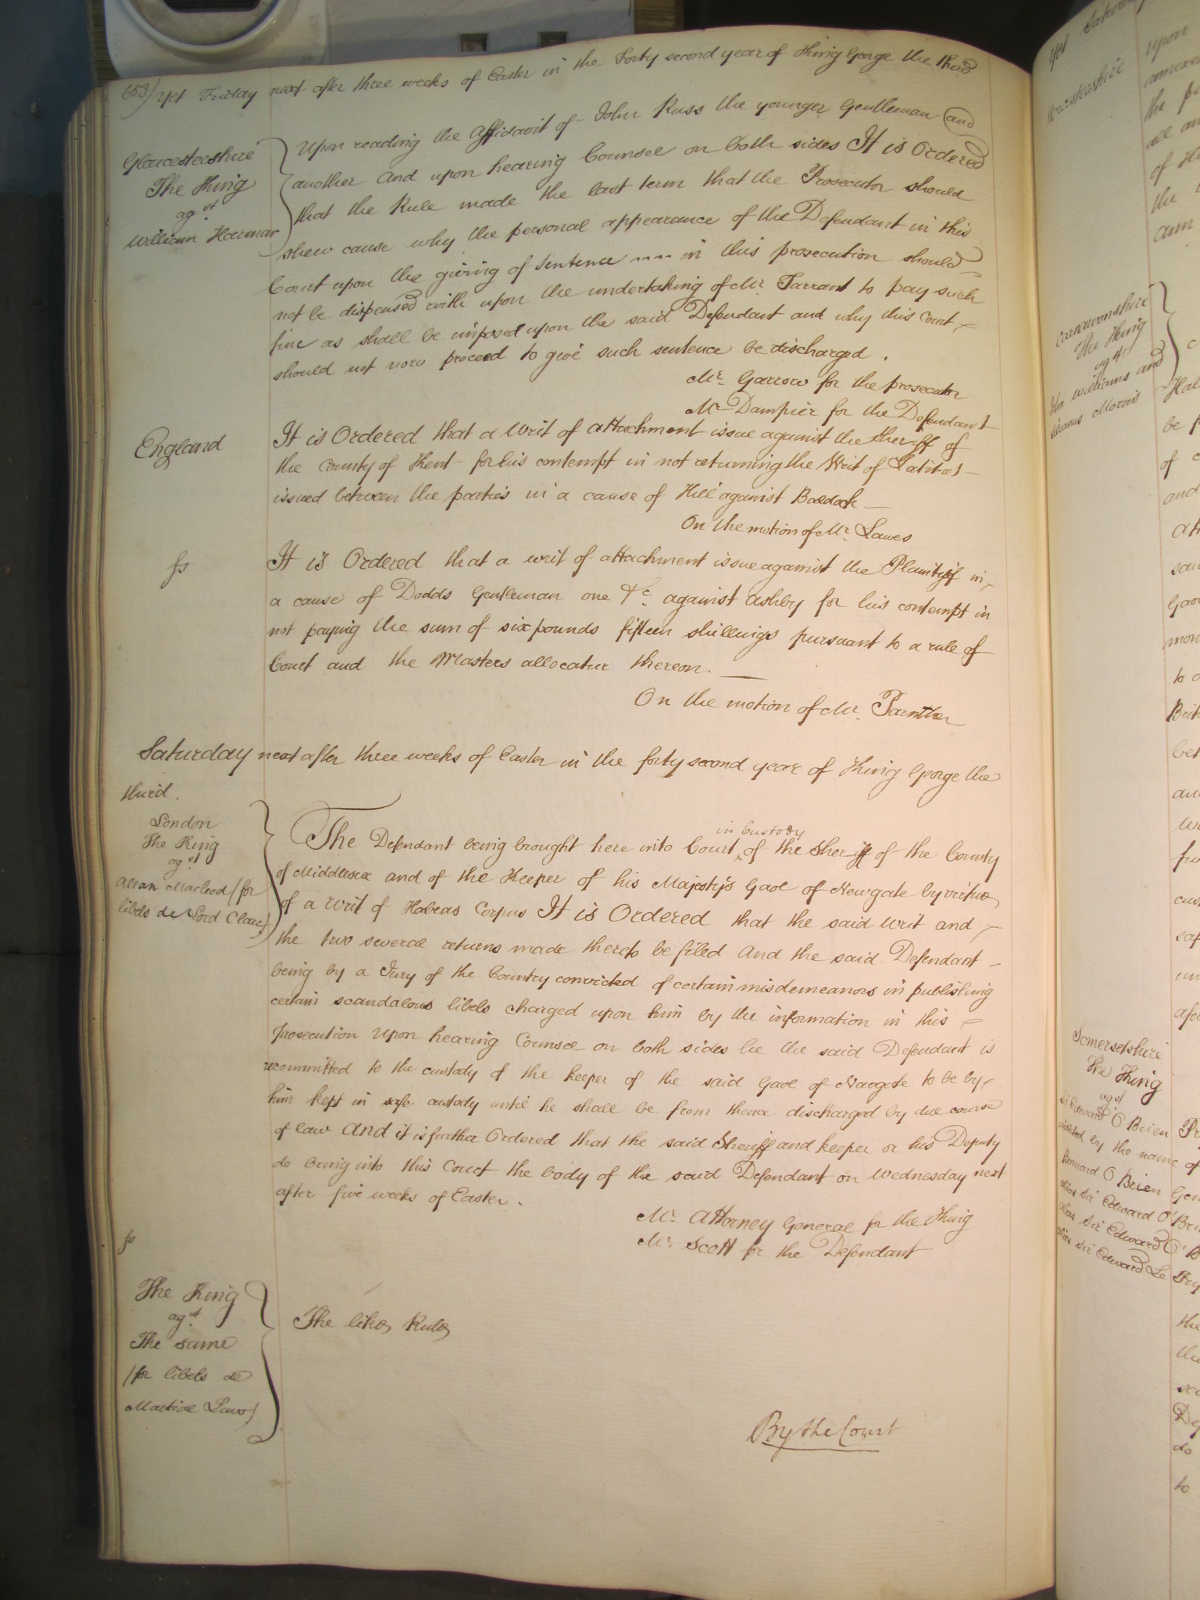 653) Yet Friday next after three weeks of Easter in the Forty second year of King George the third
Gloucestershire
The King
agst
William Harmar
Upon reading the Affidavit of John Russ the younger Gentleman and
another And upon hearing Counsel on both sides It is Ordered
that the Rule made the last term that the Prosecutor should
shew cause why the personal appearance of the Defendant in this
Court upon the giving of sentence in this prosecution should
not be dispensed with upon the undertaking of Mr. Tarrant to pay such
fine as shall be imposed upon the said Defendant and why this Court
should not now proceed to give such sentence be discharged.
Mr. Garrow for the prosecutor
Mr. Dampier for the Defendant
England
It is Ordered that a Writ of attachment issue against the Sheriff of
the County of Kent for his contempt in not returning the Writ of Latitat
issued between the parties in a cause of Hill against Baldock
On the motion of Mr. Lawes
fs
It is Ordered that a writ of attachment issue against the Plaintiff in
a cause of Dodds Gentleman one &c. against Ashby for his contempt in
not paying the sum of six pounds fifteen shillings pursuant to a rule of
Court and the Masters allocatur thereon.
On the motion of Mr. Parnther
Saturday next after three weeks of Easter in the forty second year of King George the
third.
London
The King
agst
Allan Macleod (for
libels de Lord Clare)
The Defendant being brought here into Court in Custody of the Sheriff of the County
of Middlesex and of the Keeper of his Majesty's Gaol of Newgate by virtue
of a Writ of Habeas Corpus It is Ordered that the said Writ and
the two several returns made thereto be filed And the said Defendant
being by a Jury of the Country convicted of certain misdemeanors in publishing
certain scandalous libels charged upon him by the information in this
Prosecution upon hearing Counsel on both sides he the said Defendant is
recommitted to the custody of the keeper of the said Gaol of Newgate to be by
him kept in safe custody until he shall be from thence discharged by due course
of law And it is further Ordered that the said Sheriff and keeper or his Deputy
do bring into this Court the body of the said Defendant on Wednesday next
after five weeks of Easter.
Mr. Attorney General for the King
Mr. Scott for the Defendant
fs
The King
agst
The same
(for libels de
Martial Law)
The like Rule
By the Court
Yet Saturday
The King
agst
Williams and
Morris
Somersetshire
The King
agst
O'Brien
by the name of
O'Brien
Sir Edward O'Brien
Sir Edward O'B
Sir Edward